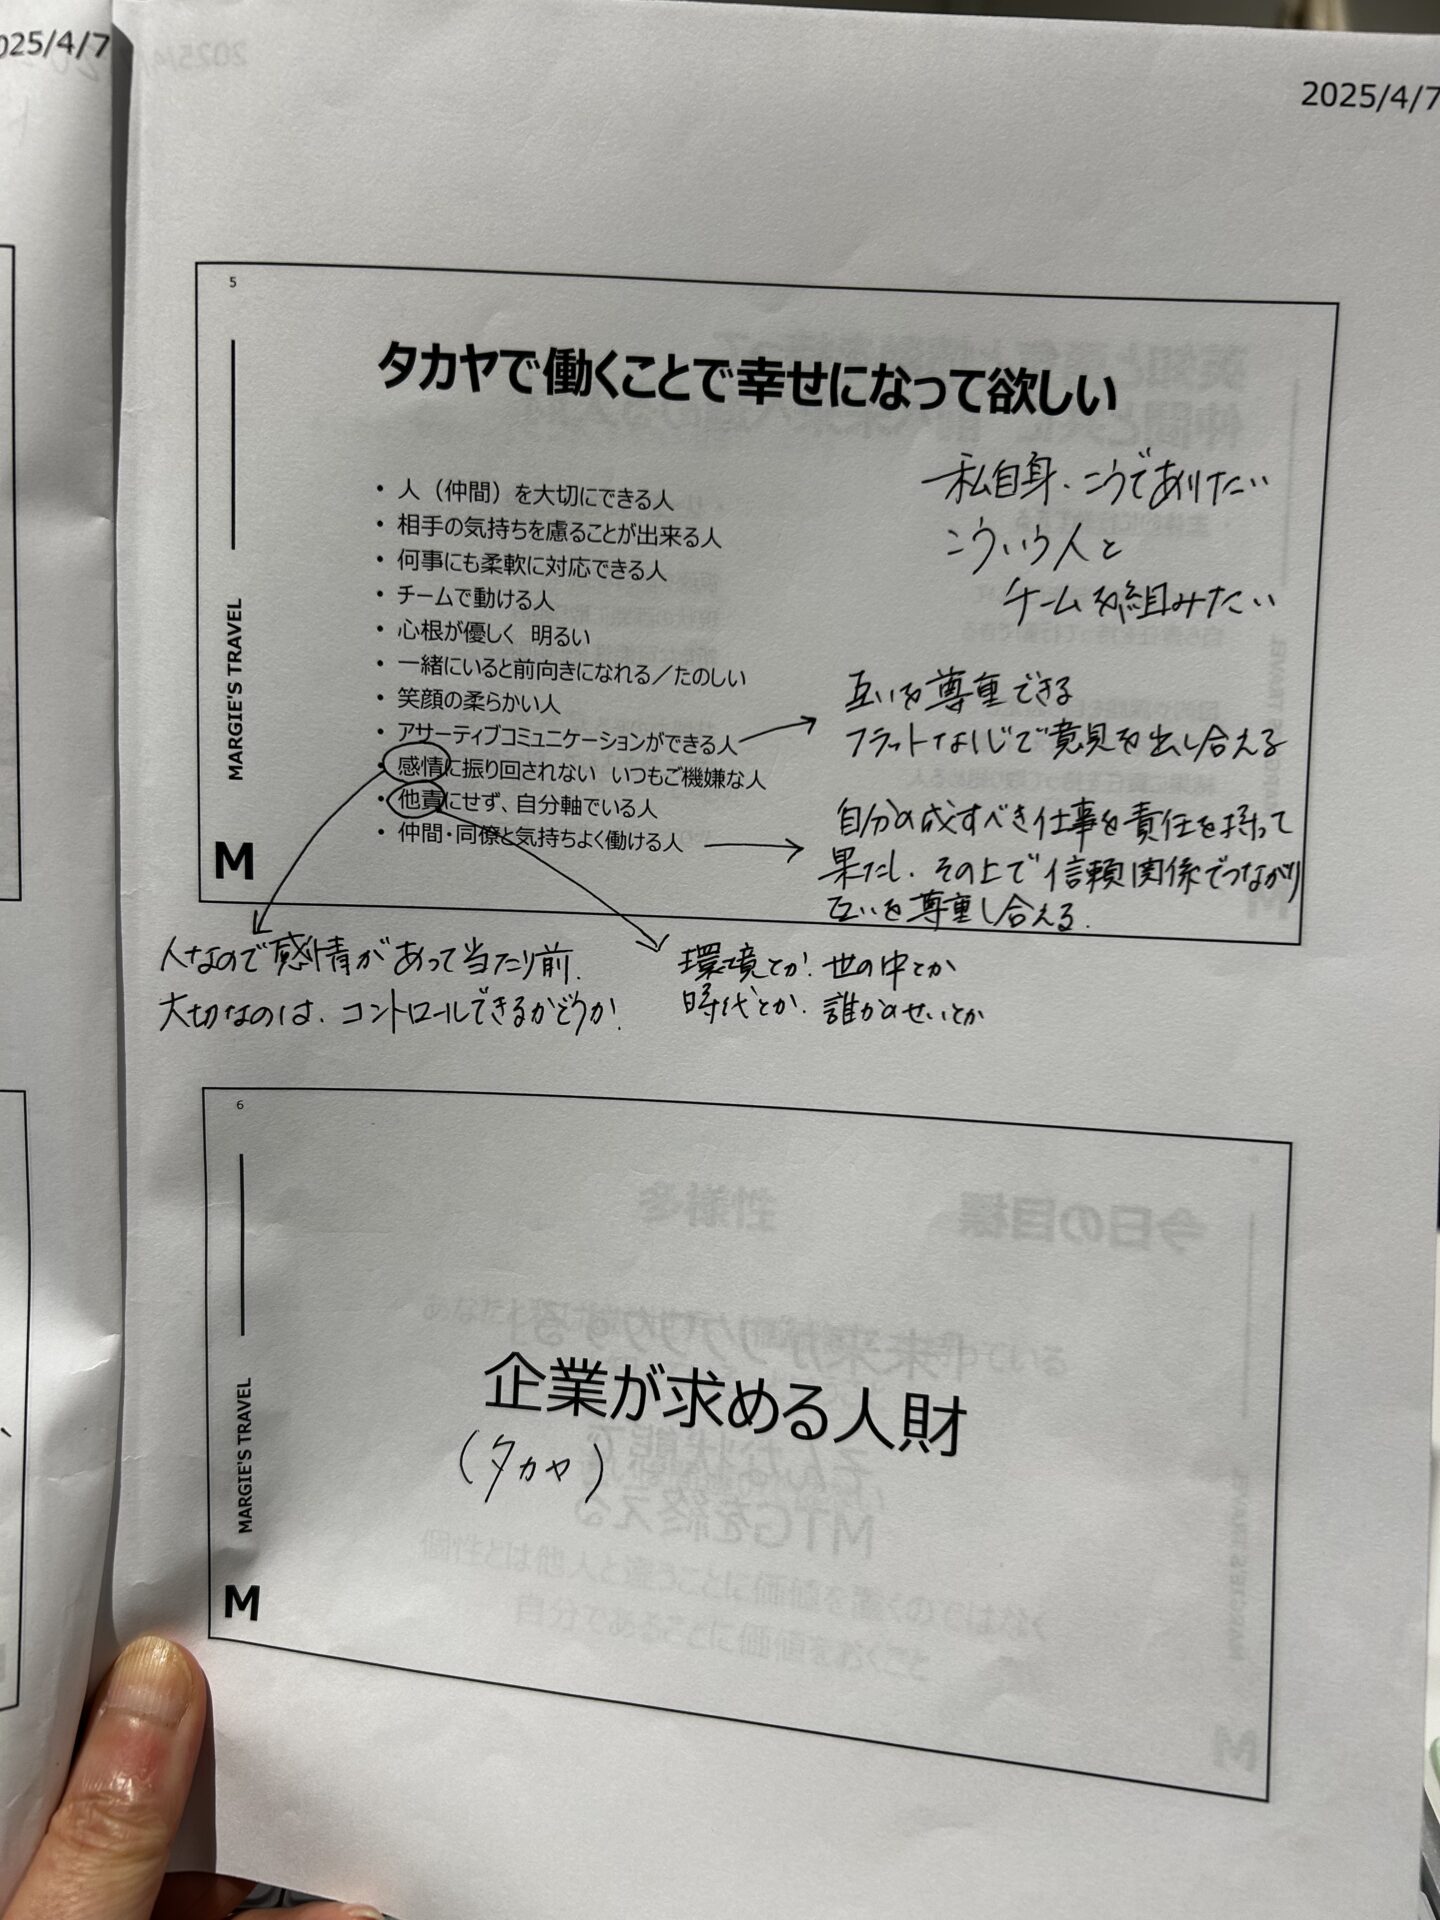 025/4/7
2025/4/7
5
タカヤで働くことで幸せになって欲しい
私自身、こうでありたい
こういう人と
チームを組みたい
• 人（仲間）を大切にできる人
• 相手の気持ちを慮ることが出来る人
• 何事にも柔軟に対応できる人
• チームで動ける人
• 心根が優しく 明るい
• 一緒にいると前向きになれる／たのしい
• 笑顔の柔らかい人
• アサーティブコミュニケーションができる人
• 感情に振り回されない いつもご機嫌な人
• 他責にせず、自分軸でいる人
• 仲間・同僚と気持ちよく働ける人
互いを尊重できる
フラットなかんじで意見を出し合える
自分の成すべき仕事を責任を持って
果たし、その上で信頼関係でつながり
互いを尊重し合える.
MARGIE'S TRAVEL
M
人なので感情があって当たり前.
大切なのは、コントロールできるかどうか.
環境とか、世の中とか
時代とか、誰かのせいとか
6
企業が求める人財
(タカヤ)
MARGIE'S TRAVEL
M